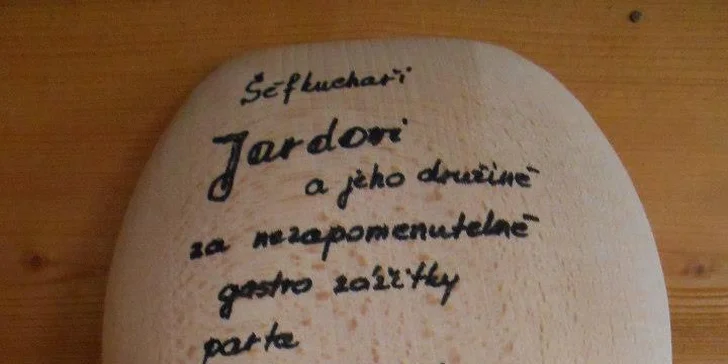 Šéfkuchaři
Jardovi
a jeho družině
za nezapomenutelné
gastro zážitky
parta